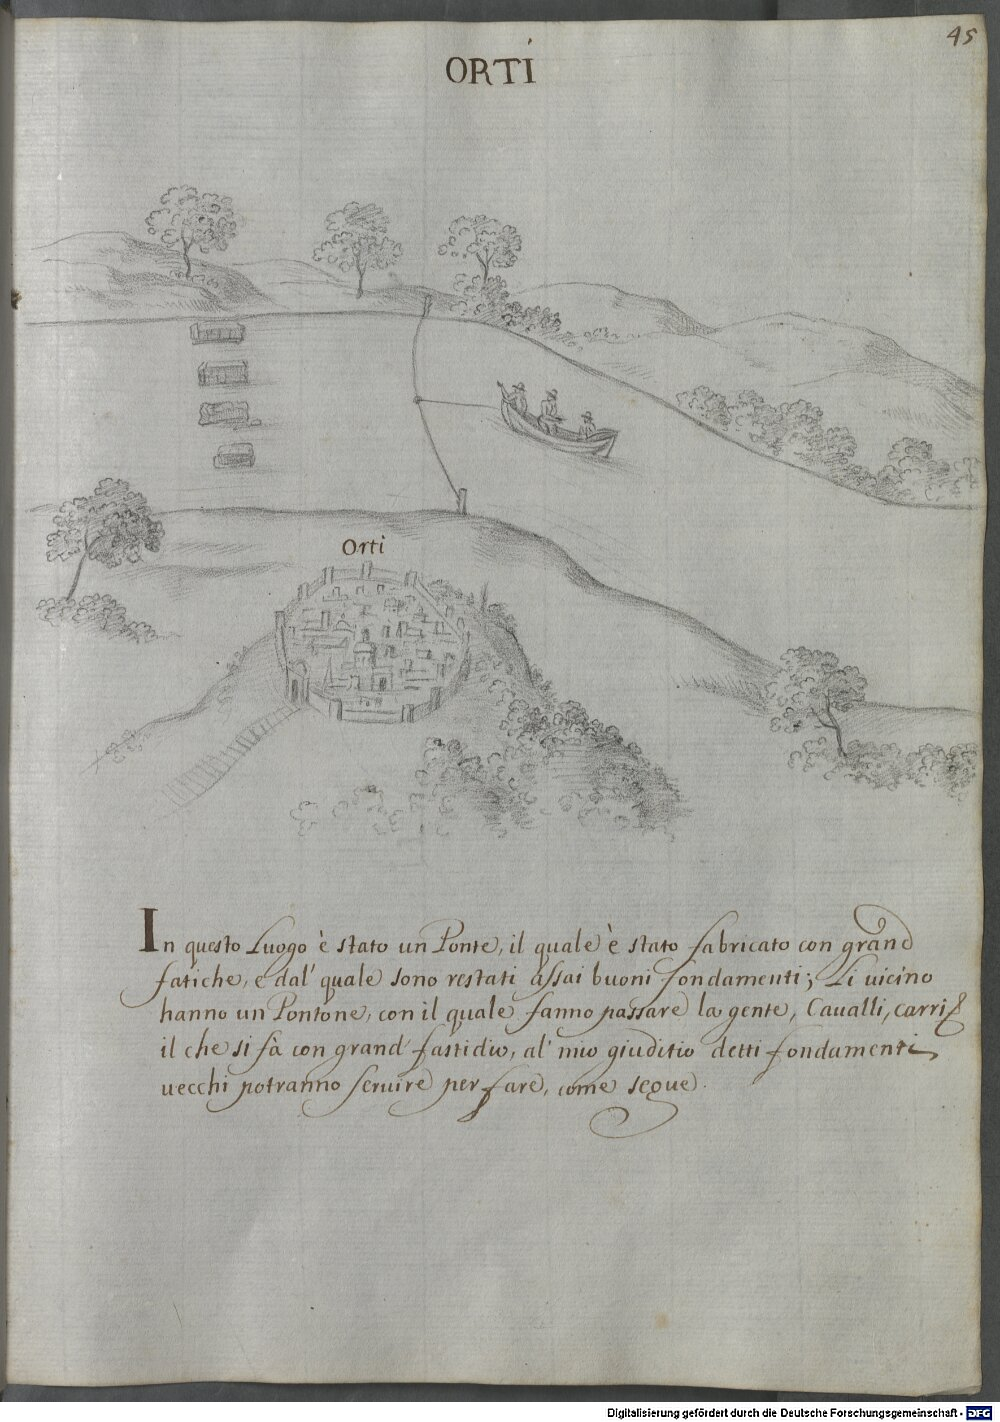 45
ORTI
Orti
In questo Luogo è stato un Ponte, il quale è stato fabricato con grand
fatiche, e dal' quale sono restati assai buoni fondamenti; Li uicino
hanno un Pontone, con il quale fanno passare la gente, Caualli, carri &
il che si fà con grand' fastidio, al' mio giuditio detti fondamenti
uecchi potranno seruire per fare, come segue.
Digitalisierung gefördert durch die Deutsche Forschungsgemeinschaft - DFG